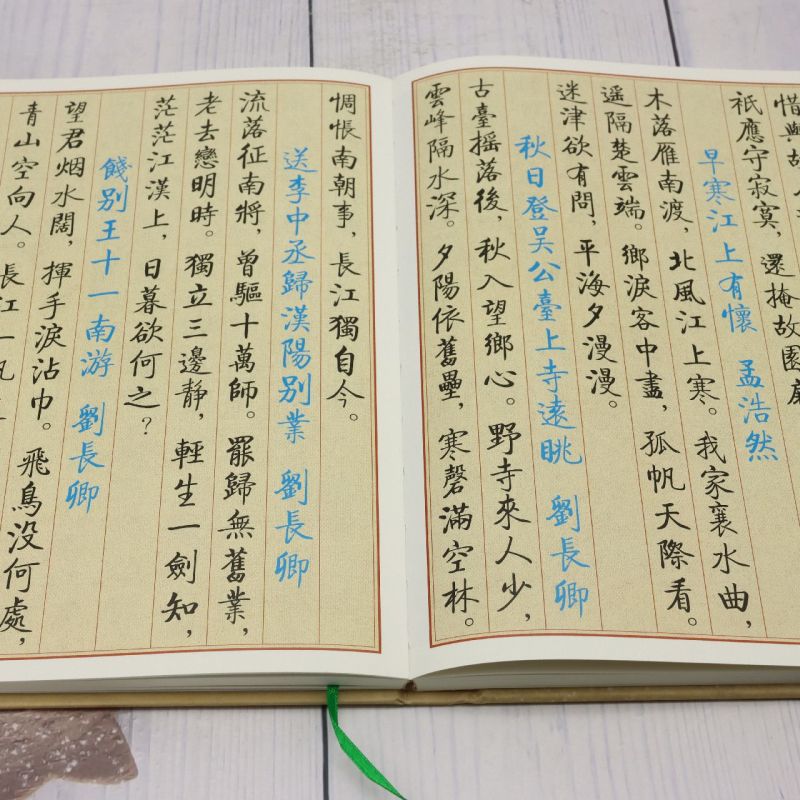 惜與故
祇應守寂寞，還掩故園扉
早寒江上有懷 孟浩然
木落雁南渡，北風江上寒。我家襄水曲，
遥隔楚雲端。鄉淚客中盡，孤帆天際看。
迷津欲有問，平海夕漫漫。
秋日登吴公臺上寺遠眺 劉長卿
古臺摇落後，秋入望鄉心。野寺來人少，
雲峰隔水深。夕陽依舊壘，寒磬滿空林。
惆悵南朝事，長江獨自今。
送李中丞歸漢陽别業 劉長卿
流落征南將，曾驅十萬師。罷歸無舊業，
老去戀明時。獨立三邊静，輕生一劍知，
茫茫江漢上，日暮欲何之？
餞别王十一南游 劉長卿
望君烟水闊，揮手淚沾巾。飛鳥没何處，
青山空向人。長江一帆